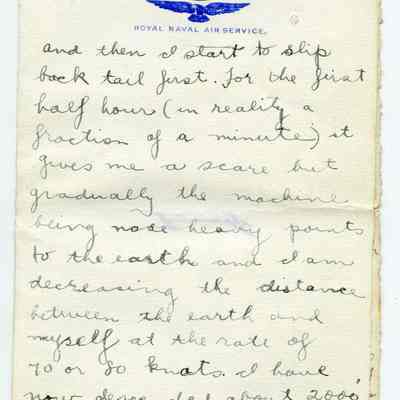 ROYAL NAVAL AIR SERVICE.
and then I start to slip
back tail first. For the first
half hour (in reality a
fraction of a minute) it
gives me a scare but
gradually the machine
being nose heavy points
to the earth and I am
decreasing the distance
between the earth and
myself at the rate of
70 or 80 knots. I have
now about 2000